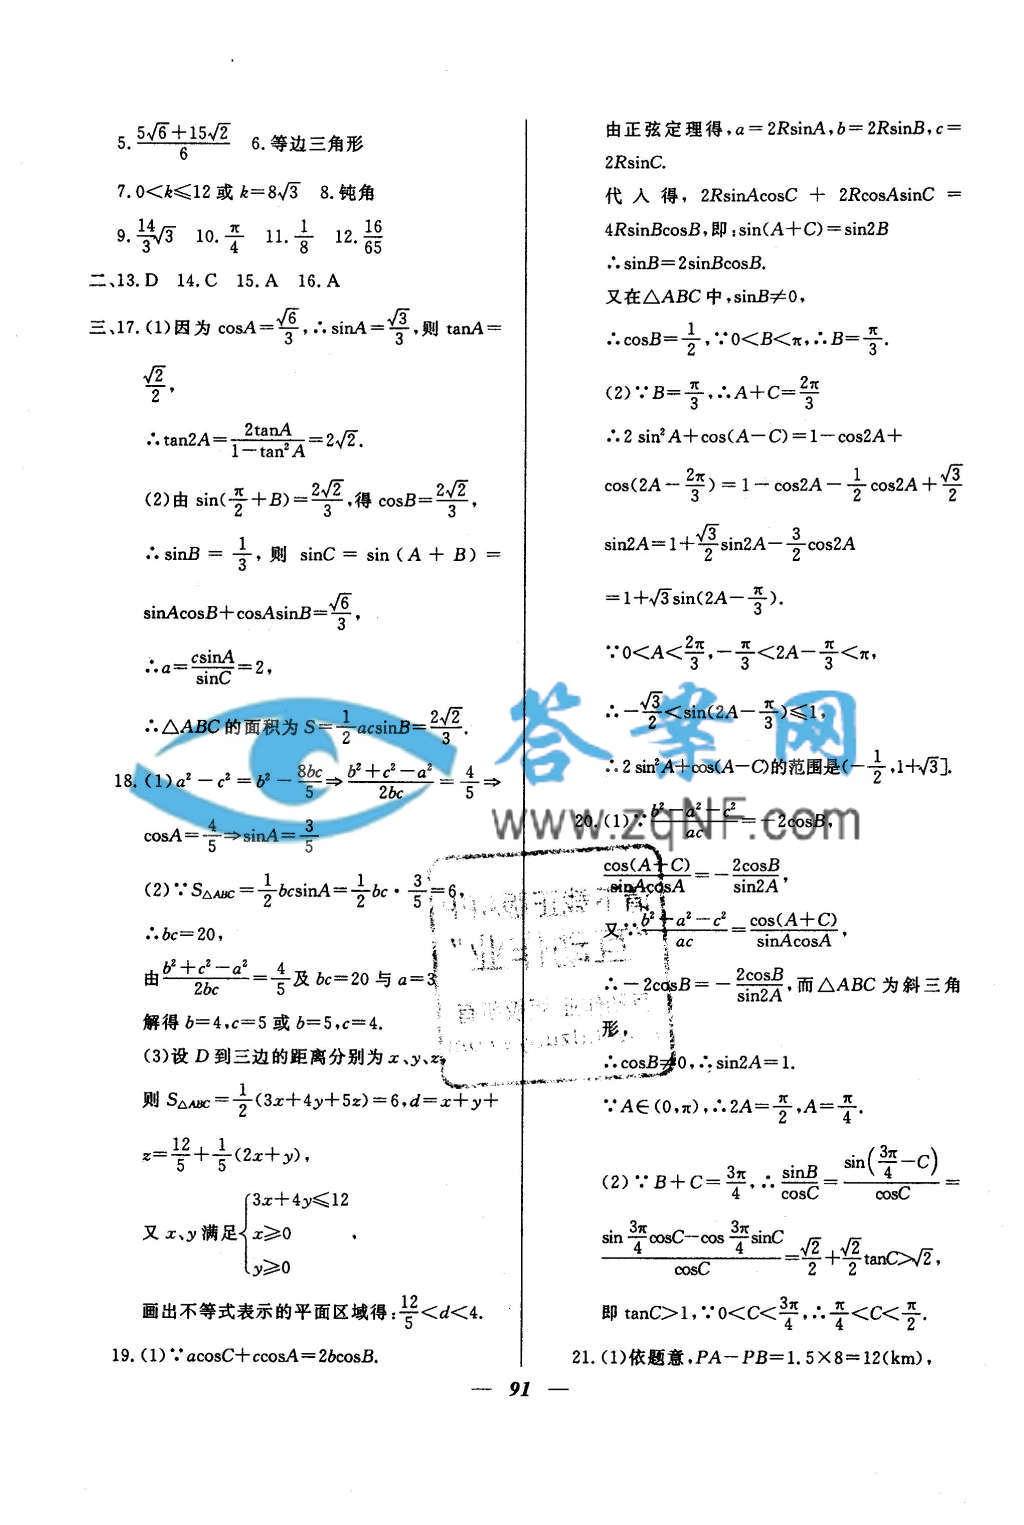 5. (5√6+15√2)/6  6. 等边三角形
7. 0<k≤12 或 k=8√3  8. 钝角
9. 14/3 √3  10. π/4  11. 1/8  12. 16/65
二、13. D  14. C  15. A  16. A
三、17. (1)因为 cosA=√6/3, ∴sinA=√3/3, 则 tanA=
√2/2,
∴tan2A=2tanA/(1-tan²A)=2√2.
(2)由 sin(π/2+B)=2√2/3, 得 cosB=2√2/3,
∴sinB = 1/3, 则 sinC = sin (A + B) =
sinAcosB+cosAsinB=√6/3,
∴a=csinA/sinC=2,
∴△ABC 的面积为 S=1/2 acsinB=2√2/3.
18. (1) a²-c²=b²-8bc/5⇒(b²+c²-a²)/2bc=4/5⇒
cosA=4/5⇒sinA=3/5
(2)∵S△ABC=1/2 bcsinA=1/2 bc·3/5=6,
∴bc=20,
由(b²+c²-a²)/2bc=4/5及 bc=20 与 a=3
解得 b=4,c=5 或 b=5,c=4.
(3)设 D 到三边的距离分别为 x、y、z,
则 S△ABC=1/2(3x+4y+5z)=6,d=x+y+
z=12/5+1/5(2x+y),
又 x、y 满足{3x+4y≤12
x≥0
y≥0,
画出不等式表示的平面区域得:12/5<d<4.
19. (1)∵acosC+ccosA=2bcosB.
由正弦定理得,a=2RsinA,b=2RsinB,c=
2RsinC.
代入得, 2RsinAcosC + 2RcosAsinC =
4RsinBcosB,即:sin(A+C)=sin2B
∴sinB=2sinBcosB.
又在△ABC 中,sinB≠0,
∴cosB=1/2,∵0<B<π,∴B=π/3.
(2)∵B=π/3,∴A+C=2π/3
∴2 sin²A+cos(A-C)=1-cos2A+
cos(2A-2π/3)=1-cos2A-1/2 cos2A+√3/2
sin2A=1+√3/2 sin2A-3/2 cos2A
=1+√3sin(2A-π/3).
∵0<A<2π/3,-π/3<2A-π/3<π,
∴-√3/2<sin(2A-π/3)≤1,
∴2 sin²A+cos(A-C)的范围是(-1/2,1+√3].
20. (1)∵(b²-a²-c²)/ac=-2cosB,
cos(A+C)/sinAcosA=-2cosB/sin2A,
又∵(b²+a²-c²)/ac=cos(A+C)/sinAcosA,
∴-2cosB=-2cosB/sin2A,而△ABC 为斜三角
形,
∴cosB≠0,∴sin2A=1.
∵A∈(0,π),∴2A=π/2,A=π/4.
(2)∵B+C=3π/4,∴sinB/cosC=sin(3π/4-C)/cosC=
(sin3π/4 cosC-cos3π/4 sinC)/cosC=√2/2+√2/2 tanC>√2,
即 tanC>1,∵0<C<3π/4,∴π/4<C<π/2.
21. (1)依题意,PA-PB=1.5×8=12(km),
— 91 —
答案网
www.zqNF.com